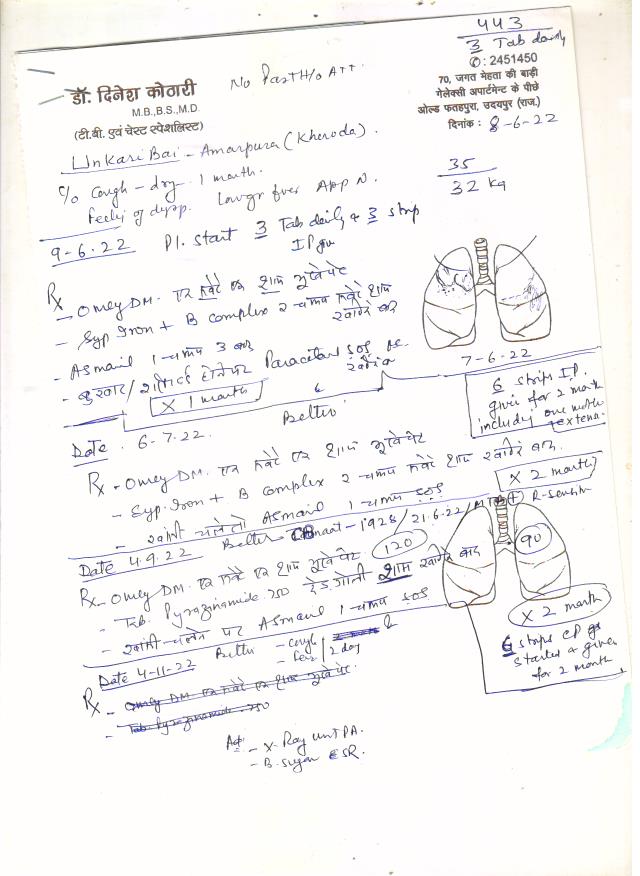 443
3 Tab daily
डॉ. दिनेश कोठारी
M.B.,B.S.,M.D.
(टी.बी. एवं चेस्ट स्पेशलिस्ट)
No Past H/o ATT.
✆: 2451450
70, जगत मेहता की बाड़ी
गेलेक्सी अपार्टमेन्ट के पीछे
ओल्ड फतहपुरा, उदयपुर (राज.)
दिनांक : 8-6-22
Unkari Bai - Amarpura (Kheroda).
35
32 kg
C/o Cough - dry - 1 month.
9-6-22 Pl. start 3 Tab daily & 3 strip
Rx
- Omey DM. एक सवेरे एक शाम भूखे पेट
- Syp Iron + B complex 2 चम्मच सवेरे शाम
खाने के बाद
- Asmail 1 चम्मच 3 बार
- बुखार / Paracetam SOS
X 1 month
7-6-22
6 strips I.P.
given for 2 month
including one month
extens.
Better
Date. 6-7-22.
Rx - Omey DM. एक सवेरे एक शाम भूखे पेट
- Syp. Iron + B complex 2 चम्मच सवेरे शाम खाने के बाद.
- खांसी चले तो Asmail 1 चम्मच SOS
X 2 month
Date 4.9.22 Better 21.6.22
120
90
Rx - Omey DM. एक सवेरे एक शाम भूखे पेट
- Tab. Pyrazinamide 750 शाम खाने के बाद
- खांसी चलने पर Asmail 1 चम्मच SOS
X 2 month
6 strips CP
started & given
for 2 month
Date 4-11-22 Better - Cough
- Fever / 2 day
Rx - Omey DM एक सवेरे एक शाम भूखे पेट.
- Tab. Pyrazinamide 750
Adv. - X-Ray unt PA.
- B. Sugar ESR.